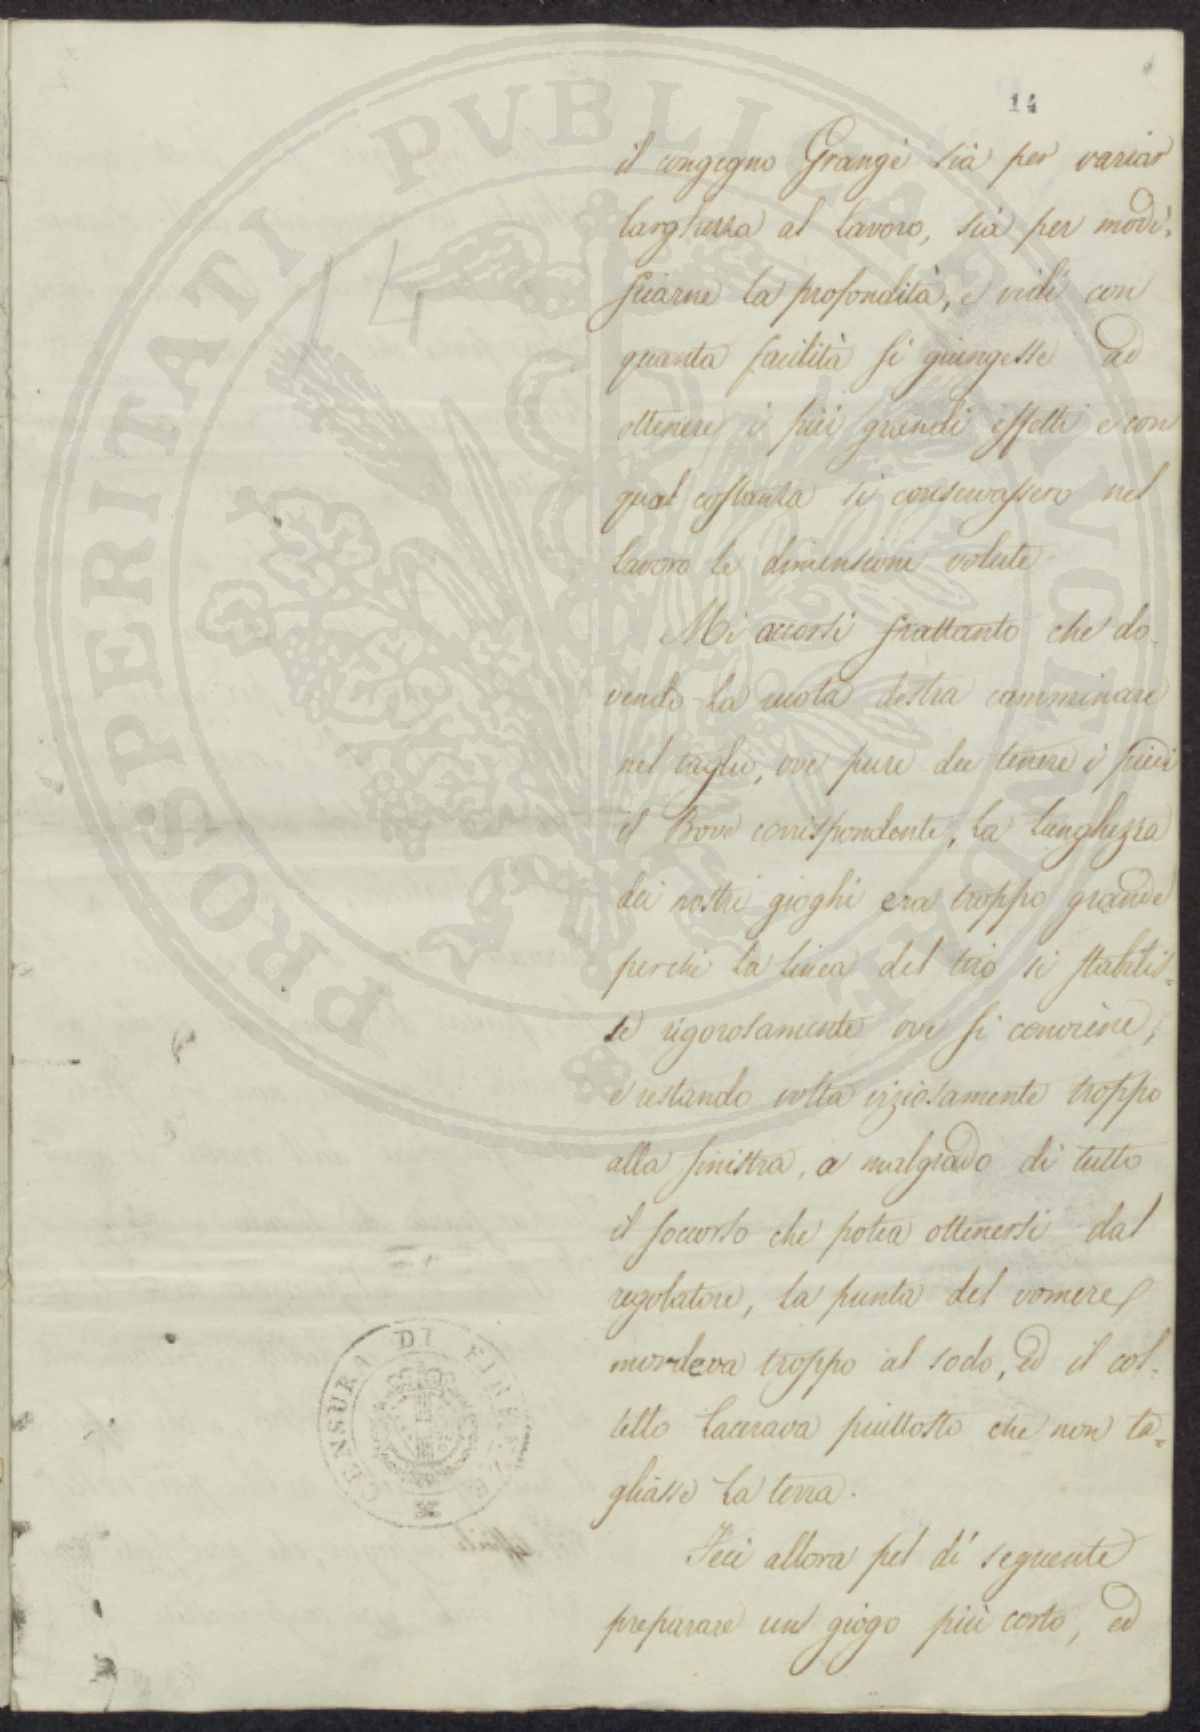 14
il congegno Grangé sià per variar
larghezza al lavoro, sià per modi-
ficarne la profondità, e vidi con
quanta facilità si giungesse ad
ottenere i più grandi effetti e con
qual costanza si conservassero nel
lavoro le dimensioni volute.
Mi accorsi frattanto che do-
vendo la ruota destra camminare
nel taglio, ove pure dee tenere i piedi
il Bove corrispondente, la lunghezza
dei nostri gioghi era troppo grande
perchè la linea del tiro si stabilis-
se rigorosamente ove si conviene;
e restando volta viziosamente troppo
alla sinistra, a malgrado di tutto
il soccorso che potea ottenersi dal
regolatore, la punta del vomere
mordeva troppo al sodo, ed il col-
tello lacerava piuttosto che non ta-
gliasse la terra.
Feci allora pel dì seguente
preparare un giogo più corto, ed
14
CENSURA DI FIRENZE
PROSPERITATI PVBLICAE AVGENDAE